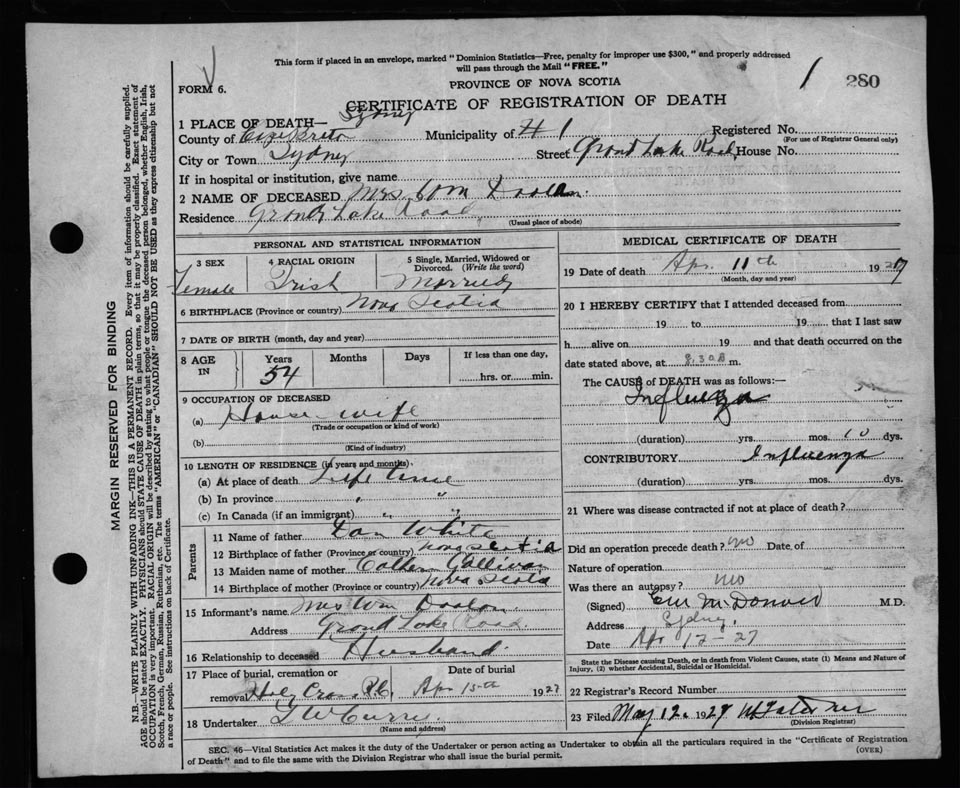 This form if placed in an envelope, marked "Dominion Statistics—Free, penalty for improper use $300," and properly addressed
will pass through the Mail "FREE."
FORM 6.
PROVINCE OF NOVA SCOTIA
1 280
CERTIFICATE OF REGISTRATION OF DEATH
1 PLACE OF DEATH— Sydney
County of Cape Breton Municipality of Registered No.
(For use of Registrar General only)
City or Town Sydney Street Grand Lake Road, House No.
If in hospital or institution, give name
2 NAME OF DECEASED Mrs. Wm Doolan.
Residence Grand Lake Road
(Usual place of abode)
PERSONAL AND STATISTICAL INFORMATION
3 SEX 4 RACIAL ORIGIN 5 Single, Married, Widowed or
Divorced. (Write the word)
Female Irish Married
6 BIRTHPLACE (Province or country) Nova Scotia
7 DATE OF BIRTH (month, day and year)
8 AGE IN Years Months Days If less than one day,
54 hrs. or min.
9 OCCUPATION OF DECEASED
(a) House-wife
(Trade or occupation or kind of work)
(b)
(Kind of industry)
10 LENGTH OF RESIDENCE (in years and months)
(a) At place of death Life time
(b) In province " "
(c) In Canada (if an immigrant) " "
Parents
11 Name of father Dan White
12 Birthplace of father (Province or country) Nova Scotia
13 Maiden name of mother Gallivan
14 Birthplace of mother (Province or country) Nova Scotia
15 Informant's name Mrs Wm Doolan
Address Grand Lake Road
16 Relationship to deceased Husband.
17 Place of burial, cremation or Date of burial
removal Holy Cross R.C. Apr 15th 1927
18 Undertaker
(Name and address)
MEDICAL CERTIFICATE OF DEATH
19 Date of death Apr. 11th 1927
(Month, day and year)
20 I HEREBY CERTIFY that I attended deceased from
19 to 19 that I last saw
h alive on 19 and that death occurred on the
date stated above, at 8.30 a m.
The CAUSE of DEATH was as follows:—
Influenza
(duration) yrs. mos. 10 dys.
CONTRIBUTORY Influenza
(duration) yrs. mos. dys.
21 Where was disease contracted if not at place of death?
Did an operation precede death? no Date of
Nature of operation
Was there an autopsy? no
(Signed) McDonald M.D.
Address Sydney.
Date Apr 12-27
State the Disease causing Death, or in death from Violent Causes, state (1) Means and Nature of
Injury, (2) whether Accidental, Suicidal or Homicidal.
22 Registrar's Record Number
23 Filed May 12. 1927
(Division Registrar)
SEC. 46—Vital Statistics Act makes it the duty of the Undertaker or person acting as Undertaker to obtain all the particulars required in the "Certificate of Registration
of Death" and to file the same with the Division Registrar who shall issue the burial permit.
(OVER)
MARGIN RESERVED FOR BINDING
N.B.—WRITE PLAINLY WITH UNFADING INK—THIS IS A PERMANENT RECORD. Every item of information should be carefully supplied.
AGE should be stated EXACTLY. PHYSICIANS should STATE CAUSE OF DEATH in plain terms, so that it may be properly classified. Exact statement of
OCCUPATION is very important. RACIAL ORIGIN will be described by stating to what people or tongue the deceased person belonged, whether English, Irish,
Scotch, French, German, Russian, Ruthenian, etc. The terms "AMERICAN" or "CANADIAN" SHOULD NOT BE USED as they express citizenship but not
a race or people. See instructions on back of Certificate.